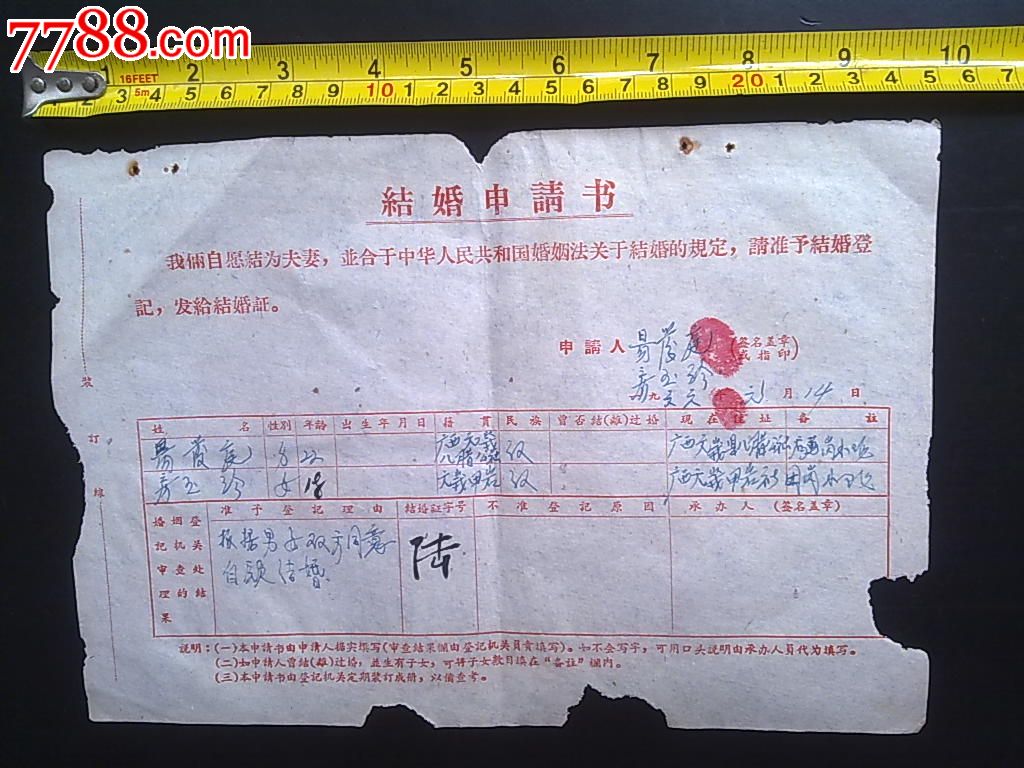 7788.com
1 2 3 4 5 6 7 8 9 10
16FEET
5m
2 3 4 5 6 7 8 9 10 1 2 3 4 5 6 7 8 9 20 1 2 3 4 5 6 7
結婚申請书
我倆自愿結为夫妻，並合于中华人民共和国婚姻法关于結婚的規定，請准予結婚登
記，发給結婚証。
申請人 (签名盖章或指印)
玉珍
九 年 元月14日
装
訂
線
姓名 性別 年龄 出生年月日 籍貫 民族 曾否結(离)过婚 現在住址 备註
玉珍 女 18
婚姻登記机关審查处理的結果
准予登記理由 結婚証字号 不准登記原因 承办人(签名盖章)
根据男女双方同意 陆
自願结婚
説明：(一)本申請书由申請人据实填写(审查結果欄由登記机关員責填写)。如不会写字，可用口头説明由承办人員代为填写。
(二)如申請人曾結(离)过婚，並生有子女，可将子女数目填在“备註”欄内。
(三)本申請书由登記机关定期装訂成册，以備查考。